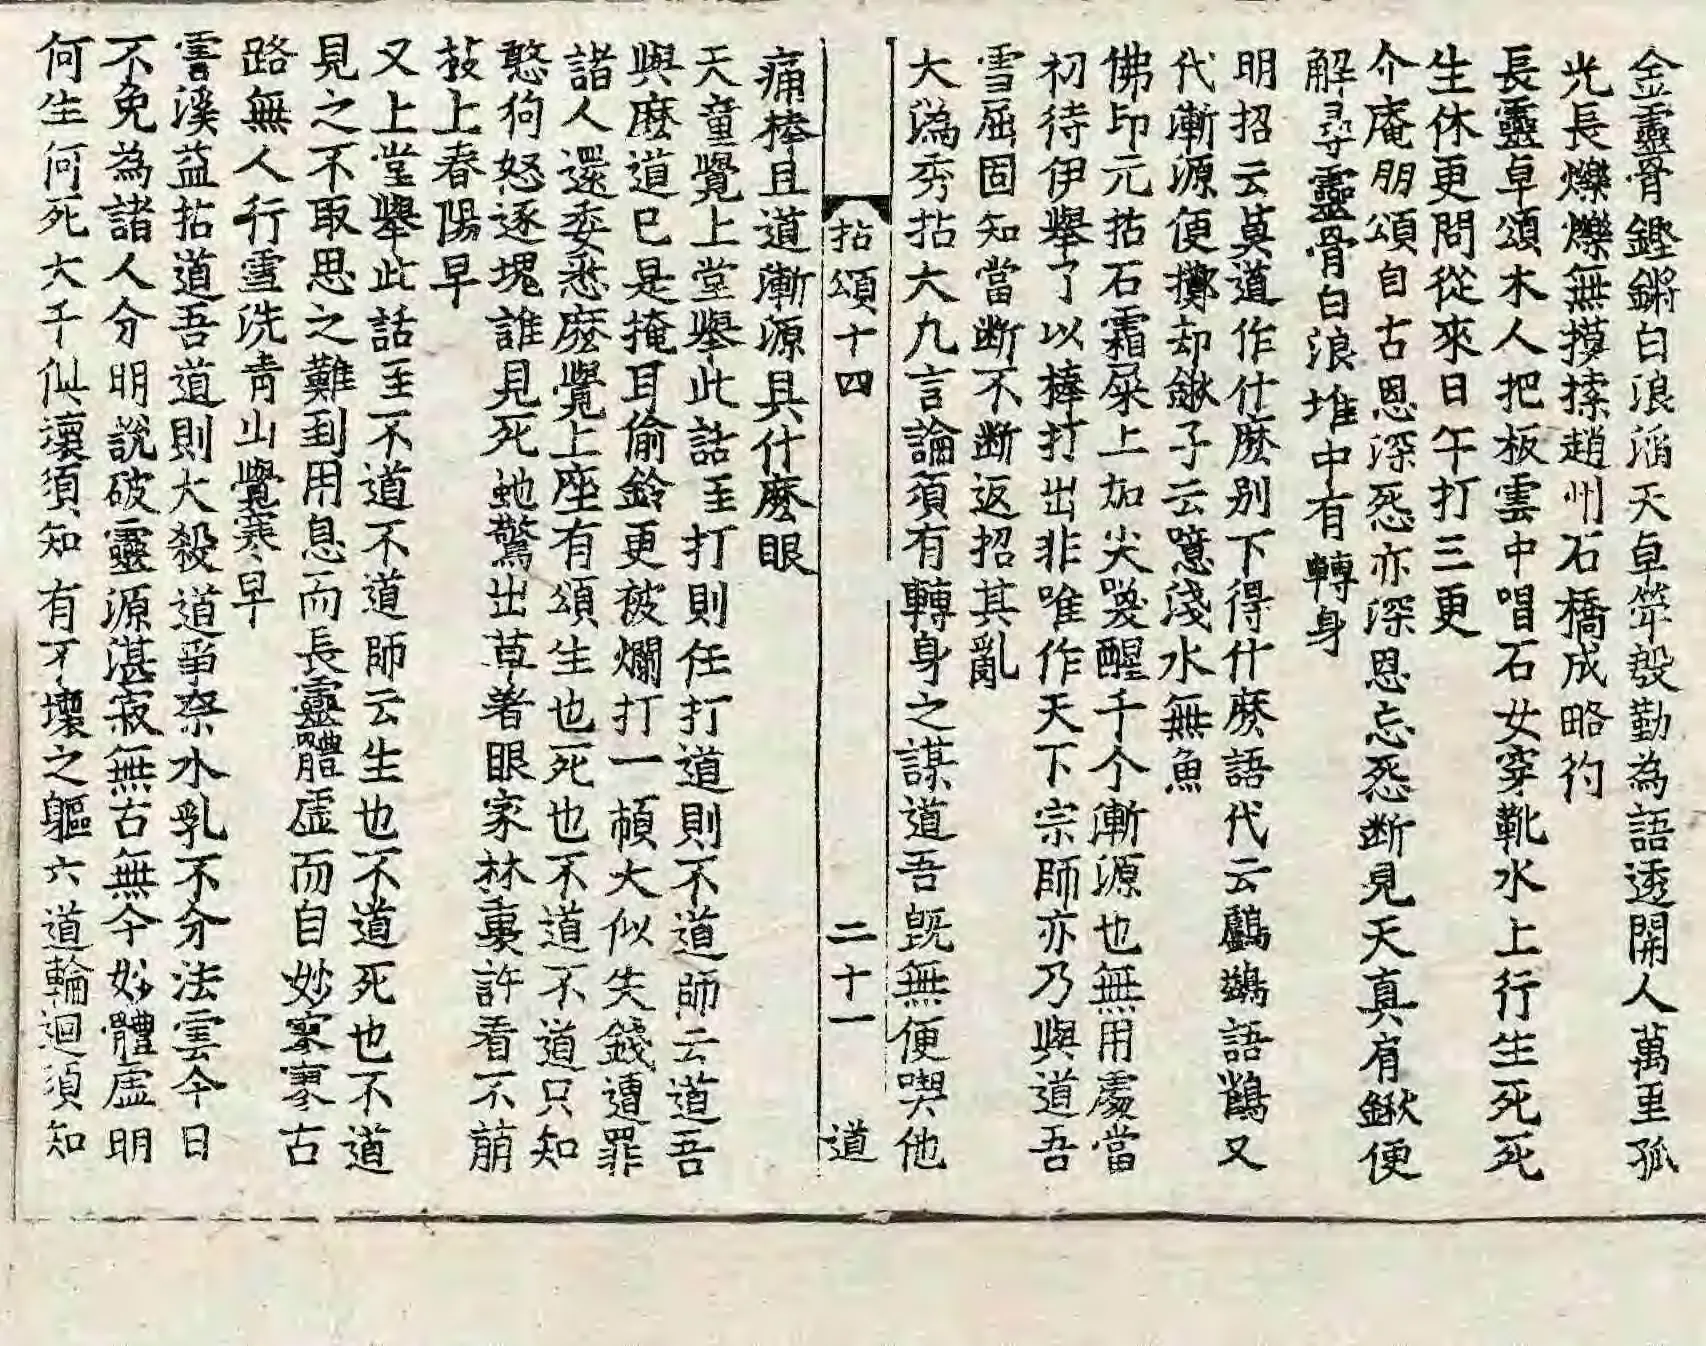 金靈骨鏗鏘白浪滔天卓犖殷勤為語透開人萬里孤
光長爍爍無摸揉趙州石橋成略彴
長靈卓頌木人把板雲中唱石女穿靴水上行生死死
生休更問從來日午打三更
介庵朋頌自古恩深㤪亦深恩忘㤪断見天真有鍬便
解尋靈骨白浪堆中有轉身
明招云莫道作什麽別下得什麽語代云鸕鷀語鶴又
代漸源便擲却鍬子云噫淺水無魚
佛印元拈石霜屎上加尖爰醒千个漸源也無用處當
初待伊舉了以棒打出非唯作天下宗師亦乃與道吾
雪屈固知當断不断返招其亂
大溈秀拈大凡言論須有轉身之謀道吾旣無便喫他
拈頌十四 二十一 道
痛棒且道漸源具什麽眼
天童覺上堂舉此話至打則任打道則不道師云道吾
與麽道已是掩耳偷鈴更被爛打一頓大似失錢遭罪
諸人還委悉麽覺上座有頌生也死也不道不道只知
憨狗怒逐塊誰見死虵驚出草著眼家林裏許看不萠
鼓上春陽早
又上堂舉此話至不道不道師云生也不道死也不道
見之不取思之難到用息而長靈體虛而自妙寥寥古
路無人行雪洗靑山覺寒早
雲溪益拈道吾道則大殺道爭柰水乳不分法雲今日
不免為諸人分明說破靈源湛寂無古無今妙體虛明
何生何死大千似壞須知有不壞之軀六道輪迴須知